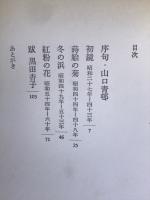 目次
序句・山口青邨
初鏡 昭和二十七年―四十三年 7
蒔絵の菊 昭和四十四年―四十八年 25
冬の浜 昭和四十九年―五十三年 46
紅粉の花 昭和五十四年―六十年 71
跋 黒田杏子 105
あとがき